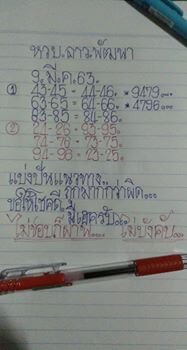 หวย.ลาวพัฒนา
9.มี.ค.63.
① 43-45 = 44-46. * 9479....
63-65 = 64-66. * 4796....
83-85 = 84-86.
② 24-26 = 93-95.
74-76 = 73-75.
94-96 = 23-25.
แบ่งปันแนวทาง..
ถูกมากกว่าผิด...
ขอให้โชคดี.มีเฮครับ...
ไม่ชอบก็ผ่าน... ไม่บังคับ...